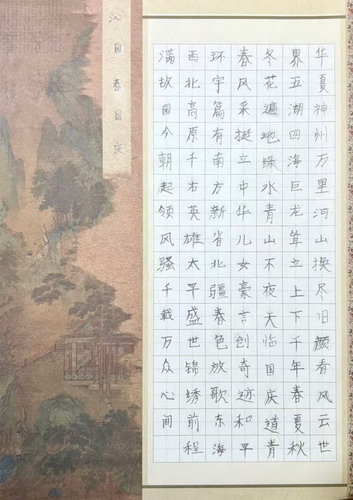 沁园春国庆
华夏神州万里河山换尽旧颜看风云世
界五湖四海巨龙耸立上下千年春夏秋
冬花遍地绿水青山不夜天临国庆道青
春风采挺立中华儿女豪言创奇迹和平
环宇篇有南方新省北疆春色放歌东海
西北高原千古英雄太平盛世锦绣前程
满故国今朝起领风骚千载万众心间